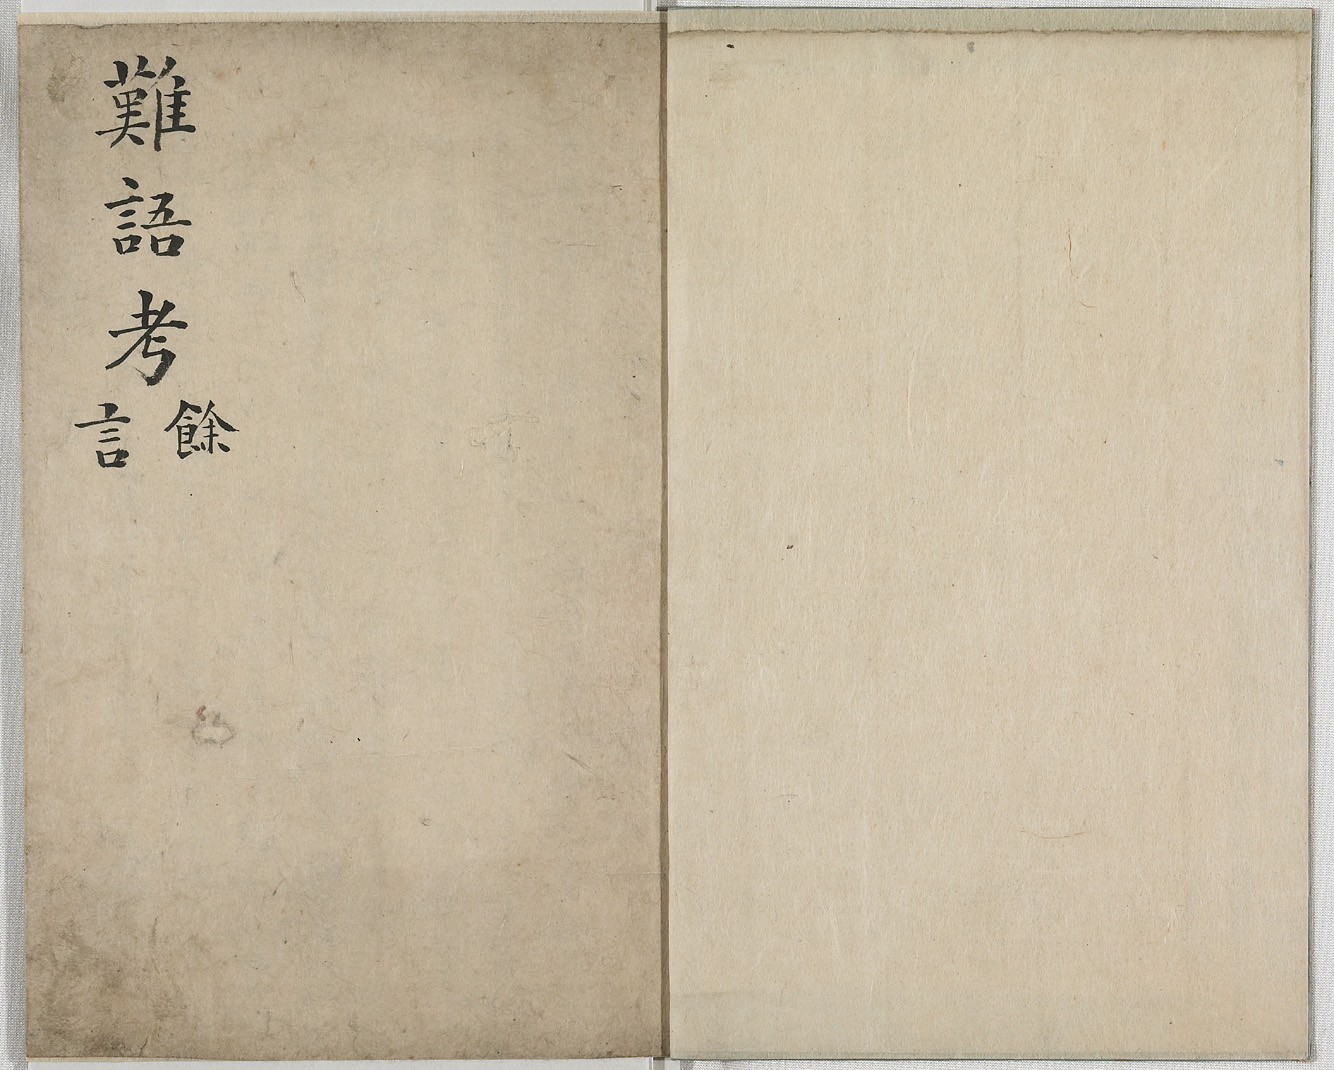 難語考
餘言